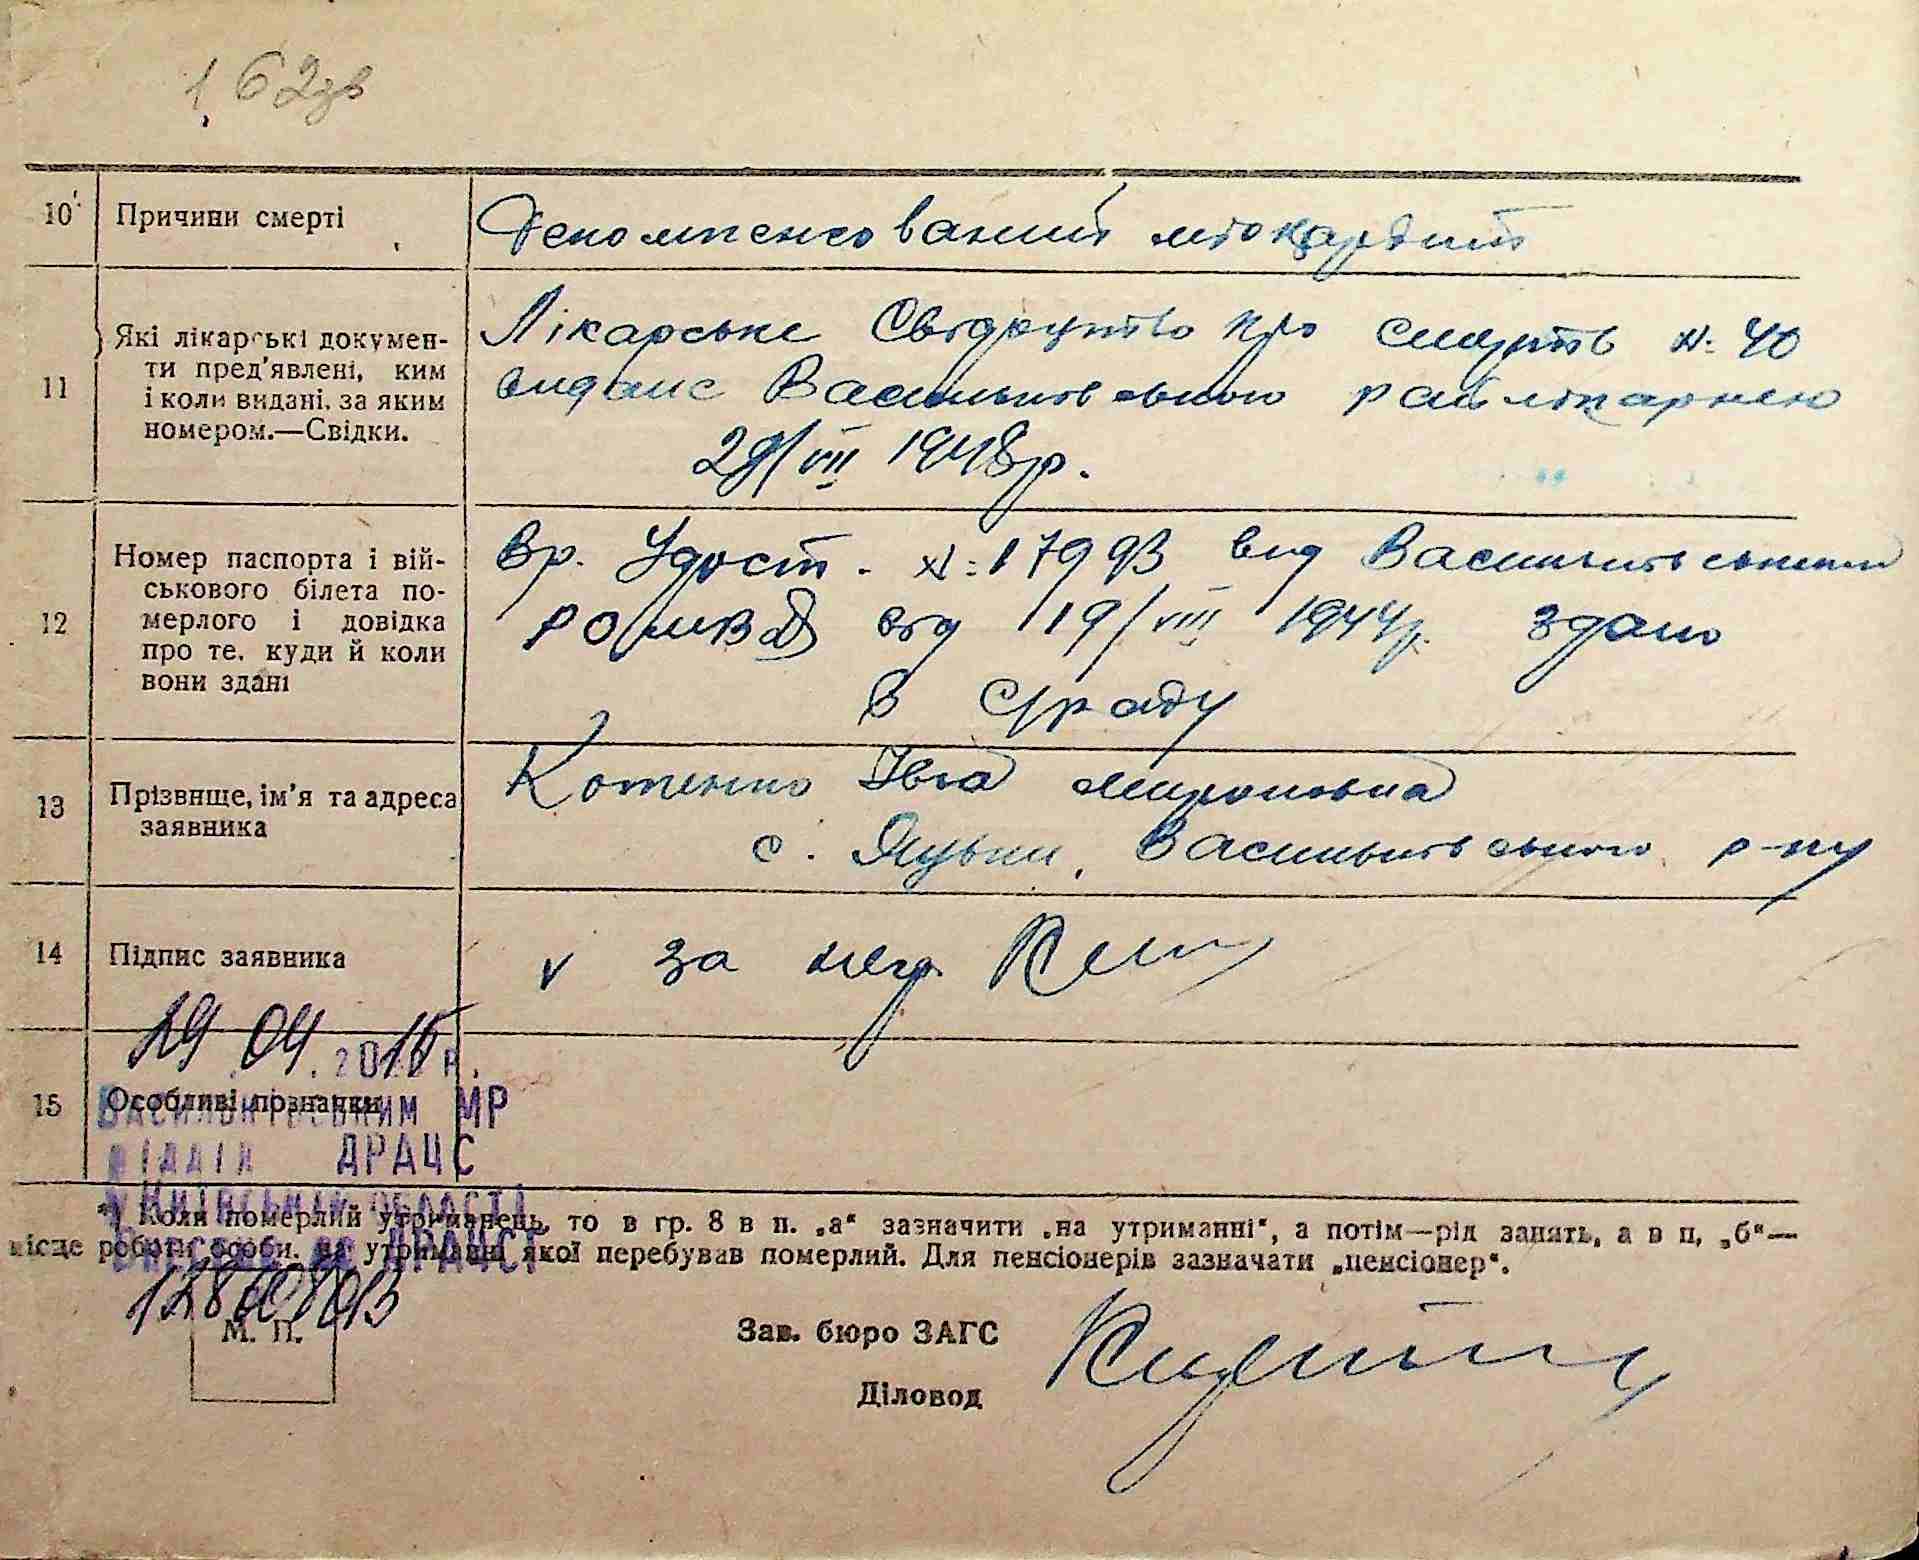 162зв
10 Причини смерті
Декомпенсований міокардит
11 Які лікарські докумен-
ти пред'явлені, ким
і коли видані, за яким
номером.—Свідки.
Лікарське Свідоцтво про смерть №: 40
видане Васильківською райлікарнею
29/VII 1948р.
12 Номер паспорта і вій-
ськового білета по-
мерлого і довідка
про те, куди й коли
вони здані
Вр. Удост. №: 17993 від Васильківським
РОМВД від 19/VIII 1944р. здано
в с/раду
13 Прізвище, ім'я та адреса
заявника
Котенко Івга Мироновна
с. Яцьки, Васильківського р-ну
14 Підпис заявника
v за негр.
29 04. 2015 р.
15 Особливі познаки
Васильківським МР
відділ ДРАЦС
у Київській області
ДРАЦСГ
*) Коли померлий утриманець, то в гр. 8 в п. „а“ зазначити „на утриманні“, а потім—рід занять, а в п. „б“—
місце роботи особи, на утриманні якої перебував померлий. Для пенсіонерів зазначати „пенсіонер“.
М. П.
Зав. бюро ЗАГС
Діловод